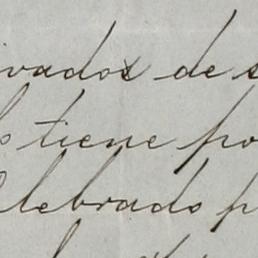 ivados de s
o tiene po
elebrado p